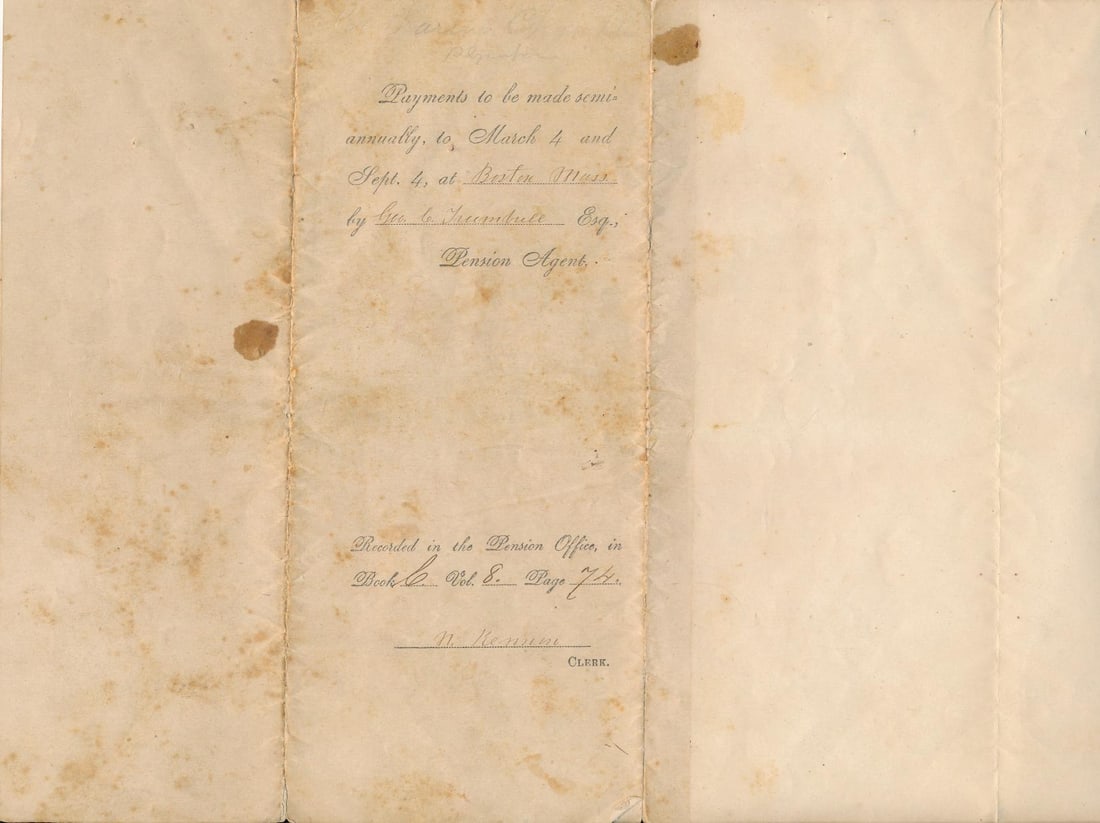 Payments to be made semi-
annually, to March 4 and
Sept. 4, at Boston Mass
by Geo. C. Trumbull Esq.,
Pension Agent.
Recorded in the Pension Office, in
Book C. Vol. 8. Page 74.
CLERK.